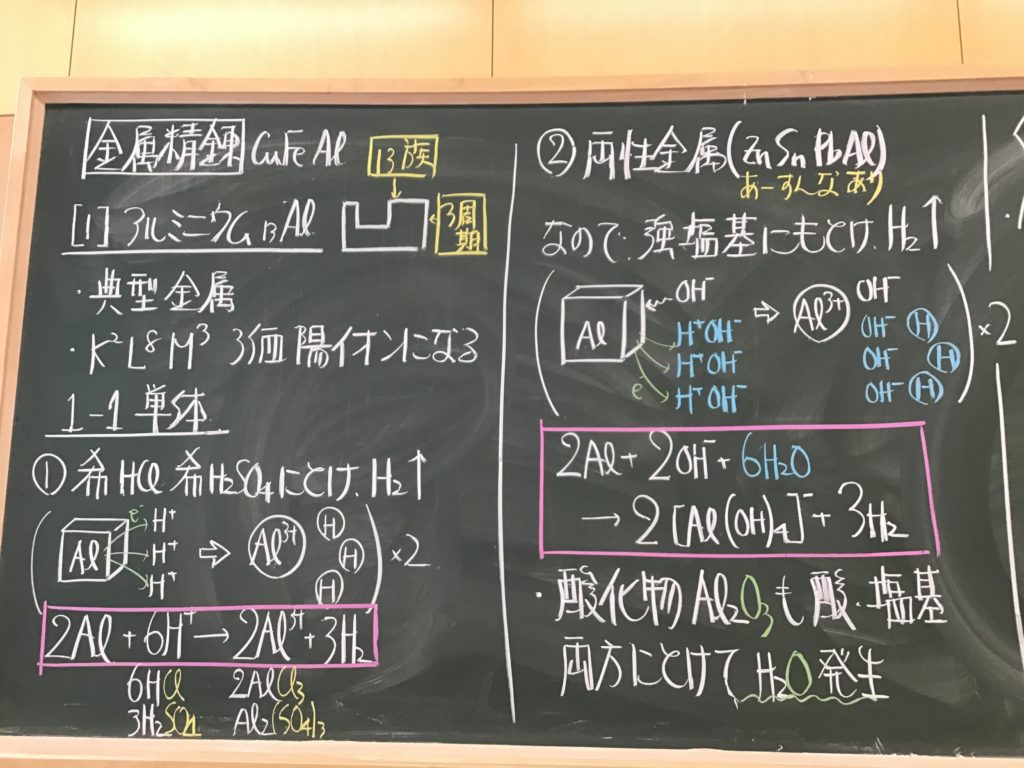 金属精錬 Cu Fe Al
13族
[1] アルミニウム 13Al
3周期
・典型金属
・K²L⁸M³ 3価陽イオンになる
1-1 単体
① 希HCl 希H₂SO₄にとけ、H₂↑
e⁻
H⁺
Al H⁺ ⇨ Al³⁺ H H H ×2
H⁺
2Al + 6H⁺ → 2Al³⁺ + 3H₂
6HCl 2AlCl₃
3H₂SO₄ Al₂(SO₄)₃
② 両性金属(Zn Sn Pb Al)
あーすんなあり
なので、強塩基にもとけ、H₂↑
OH⁻ ⇨ Al³⁺ OH⁻
Al H⁺OH⁻ OH⁻ H ×2
H⁺OH⁻ OH⁻ H
e⁻ H⁺OH⁻ OH⁻ H
2Al + 2OH⁻ + 6H₂O
→ 2[Al(OH)₄]⁻ + 3H₂
・酸化物Al₂O₃も酸・塩基
両方にとけてH₂O発生